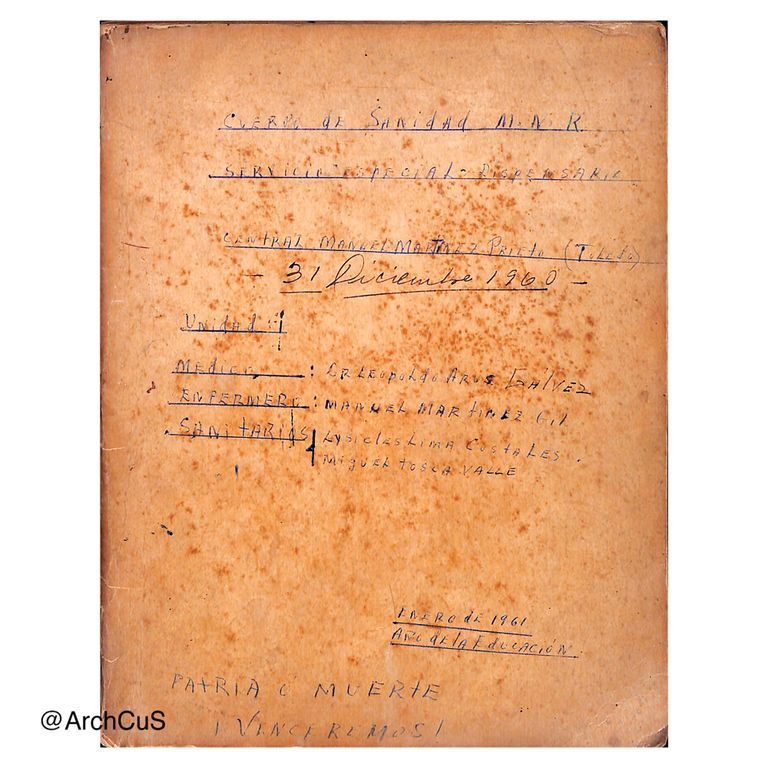 CUERPO DE SANIDAD M.N.R.
SERVICIO ESPECIAL - DISPENSARIO
CENTRAL MANUEL MARTINEZ PRIETO (TOLEDO)
- 31 Diciembre 1960 -
UNIDAD:
MEDICO : DR LEOPOLDO ARUS GÁLVEZ
ENFERMERO : MANUEL MARTINEZ Gil
SANITARIOS LYSICLES LIMA COSTALES.
MIGUEL TOSCA VALLE
ENERO DE 1961
AÑO DE LA EDUCACIÓN.
PATRIA O MUERTE
¡VENCEREMOS!
@ArchCuS